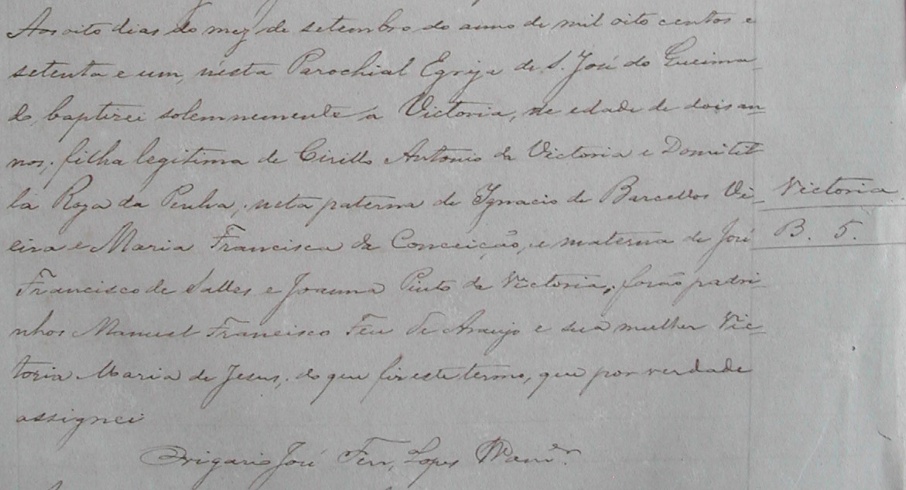 Aos oito dias do mez de setembro do anno de mil oito centos e
setenta e um, nésta Parochial Egrija de S. José do Queima-
do baptizei solemnemente a Victoria, de edade de dois an-
nos; filha legitima de Cirillo Antonio da Victoria e Domitil-
la Roza da Penha; neta paterna de Ignacio de Barcellos Vi- Victoria
eira e Maria Francisca da Conceição, e materna de José B. 5.
Francisco de Salles e Joanna Pinto da Victoria; forão padri-
nhos Manuel Francisco Feu de Araujo e sua mulher Vic-
toria Maria de Jesus, do que fiz este termo, que por verdade
assignei
O vigario José Ferr. Lopes